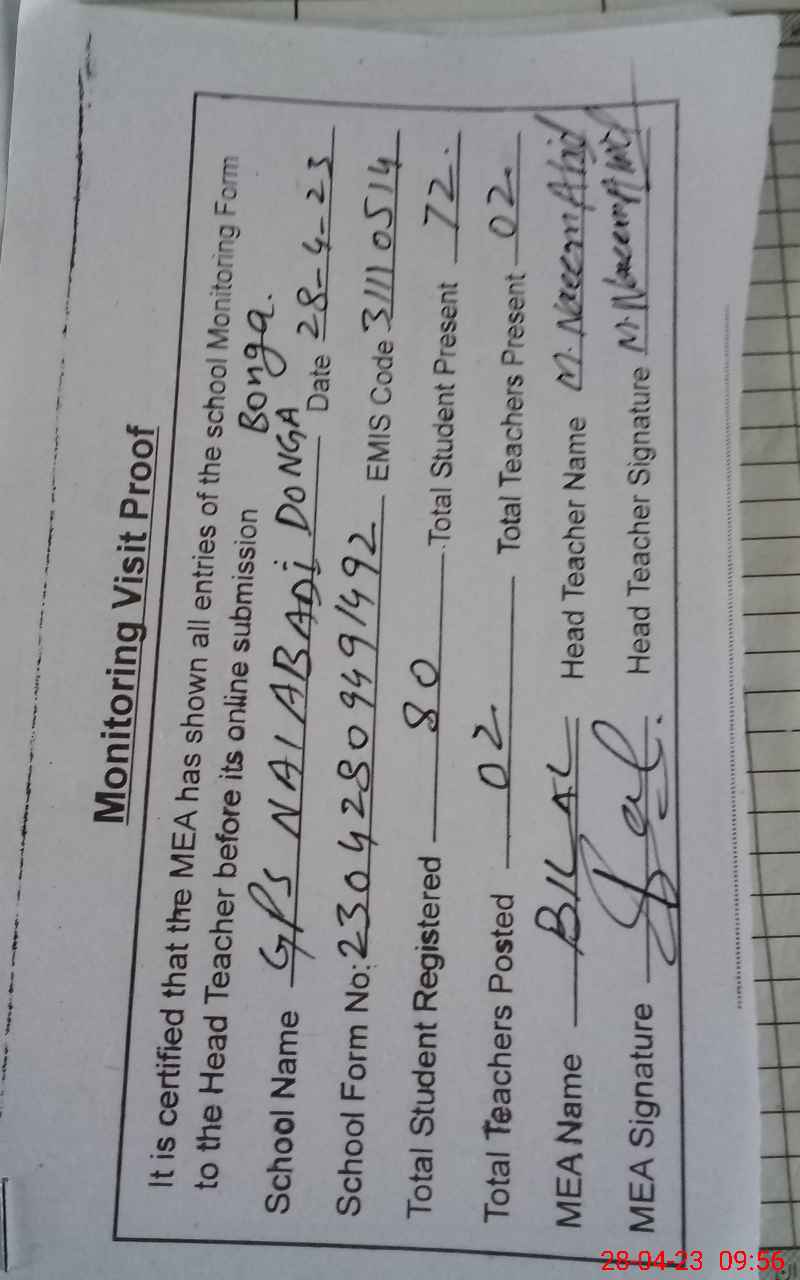 Monitoring Visit Proof
It is certified that the MEA has shown all entries of the school Monitoring Form
to the Head Teacher before its online submission Bonga.
School Name GPS NAI ABADI DONGA Date 28-4-23
School Form No: 23042809491492 EMIS Code 31110514
Total Student Registered 80 Total Student Present 72.
Total Teachers Posted 02 Total Teachers Present 02
MEA Name BILAL Head Teacher Name M. Naeem Abid
MEA Signature Head Teacher Signature M. Naeem Abid
28-04-23 09:56